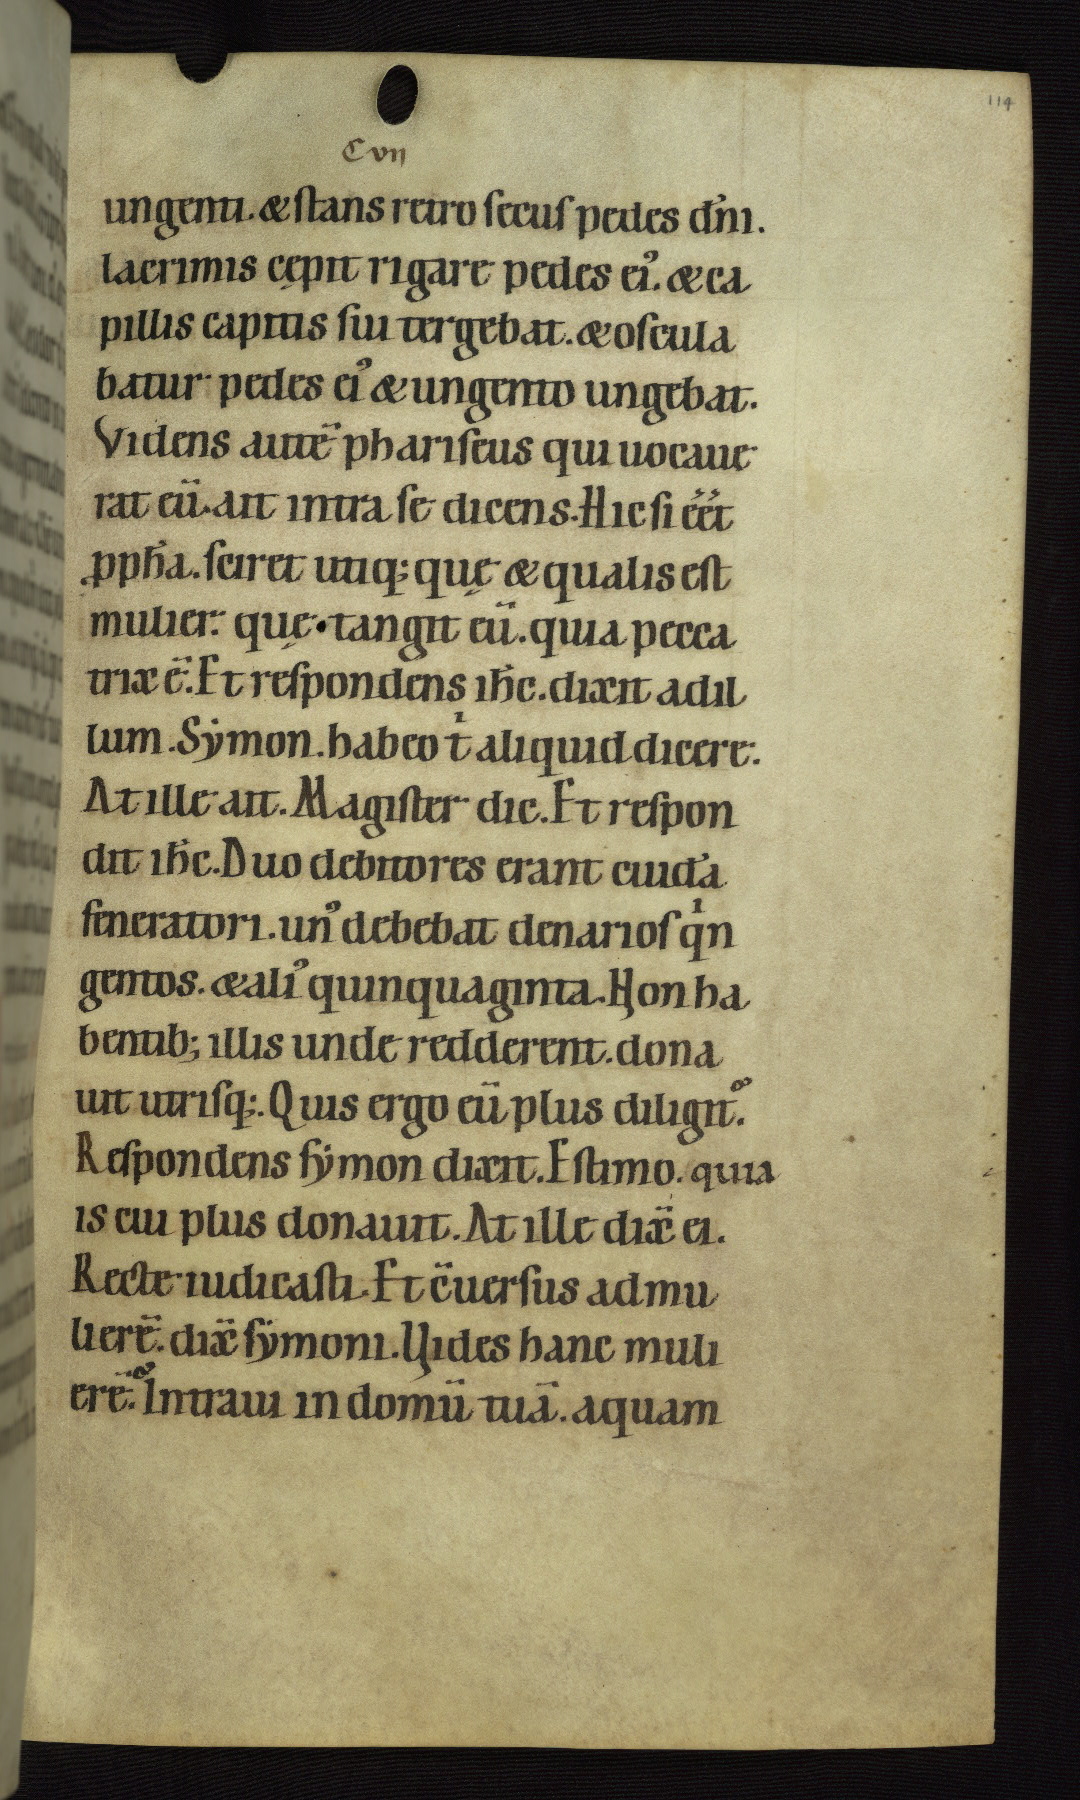 114
Cvij
ungenti. & stans retro secus pedes dn̄i.
lacrimis cępit rigare pedes ei᾿. & ca
pillis capitis sui tergebat. & oscula
batur pedes ei᾿ & ungento ungebat.
Videns autē phariseus qui uocaue
rat eū. ait intra se dicens. Hic si ēēt
ꝓph̄a. sciret utiq; quę & qualis est
mulier. quę tangit eū. quia pecca
trix ē. Et respondens ih̄c. dixit ad il
lum. Sẏmon. habeo tⁱ aliquid dicere.
At ille ait. Magister dic. Et respon
dit ih̄c. Duo debitores erant cuidā
feneratori. un᾿ debebat denarios qⁱn
gentos. & ali᾿ quinquaginta. Non ha
bentib; illis unde redderent. dona
uit utrisq;. Quis ergo eū plus diligit.
Respondens sẏmon dixit. Estimo. quia
is cui plus donauit. At ille dix̄ ei.
Recte iudicasti. Et c̄uersus ad mu
lierē. dix̄ sẏmoni. Vides hanc muli
erē. Intraui in domū tuā. aquam